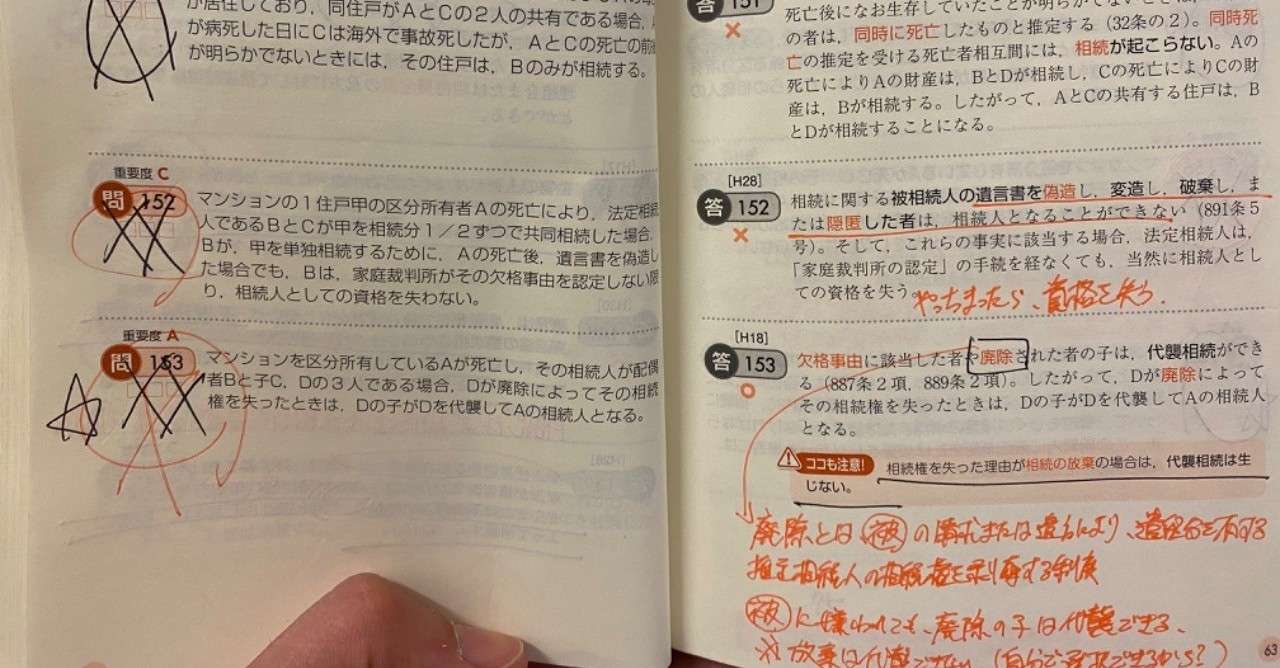 が居住しており，同住戸がAとCの2人の共有である場合，
が病死した日にCは海外で事故死したが，AとCの死亡の前
が明らかでないときには，その住戸は，Bのみが相続する。
重要度 C
問 152
マンションの1住戸甲の区分所有者Aの死亡により，法定相続
人であるBとCが甲を相続分1／2ずつで共同相続した場合，
Bが，甲を単独相続するために，Aの死亡後，遺言書を偽造し
た場合でも，Bは，家庭裁判所がその欠格事由を認定しない限
り，相続人としての資格を失わない。
重要度 A
問 153
マンションを区分所有しているAが死亡し，その相続人が配偶
者Bと子C，Dの3人である場合，Dが廃除によってその相続
権を失ったときは，Dの子がDを代襲してAの相続人となる。
答 151
×
死亡後になお生存していたことが明らかでないときは，
の者は，同時に死亡したものと推定する（32条の2）。同時死
亡の推定を受ける死亡者相互間には，相続が起こらない。Aの
死亡によりAの財産は，BとDが相続し，Cの死亡によりCの財
産は，Bが相続する。したがって，AとCの共有する住戸は，B
とDが相続することになる。
[H28]
答 152
×
相続に関する被相続人の遺言書を偽造し，変造し，破棄し，ま
たは隠匿した者は，相続人となることができない（891条5
号）。そして，これらの事実に該当する場合，法定相続人は，
「家庭裁判所の認定」の手続を経なくても，当然に相続人とし
ての資格を失う。
やっちまったら、資格を失う.
[H18]
答 153
○
欠格事由に該当した者や廃除された者の子は，代襲相続ができ
る（887条2項，889条2項）。したがって，Dが廃除によって
その相続権を失ったときは，Dの子がDを代襲してAの相続人
となる。
ココも注意！ 相続権を失った理由が相続の放棄の場合は，代襲相続は生
じない。
廃除とは被の請求または遺言により、遺留分を有する
推定相続人の相続権を剥奪する制度
被に嫌われても、廃除の子は代襲できる、
※放棄は代襲できない(自分で
63